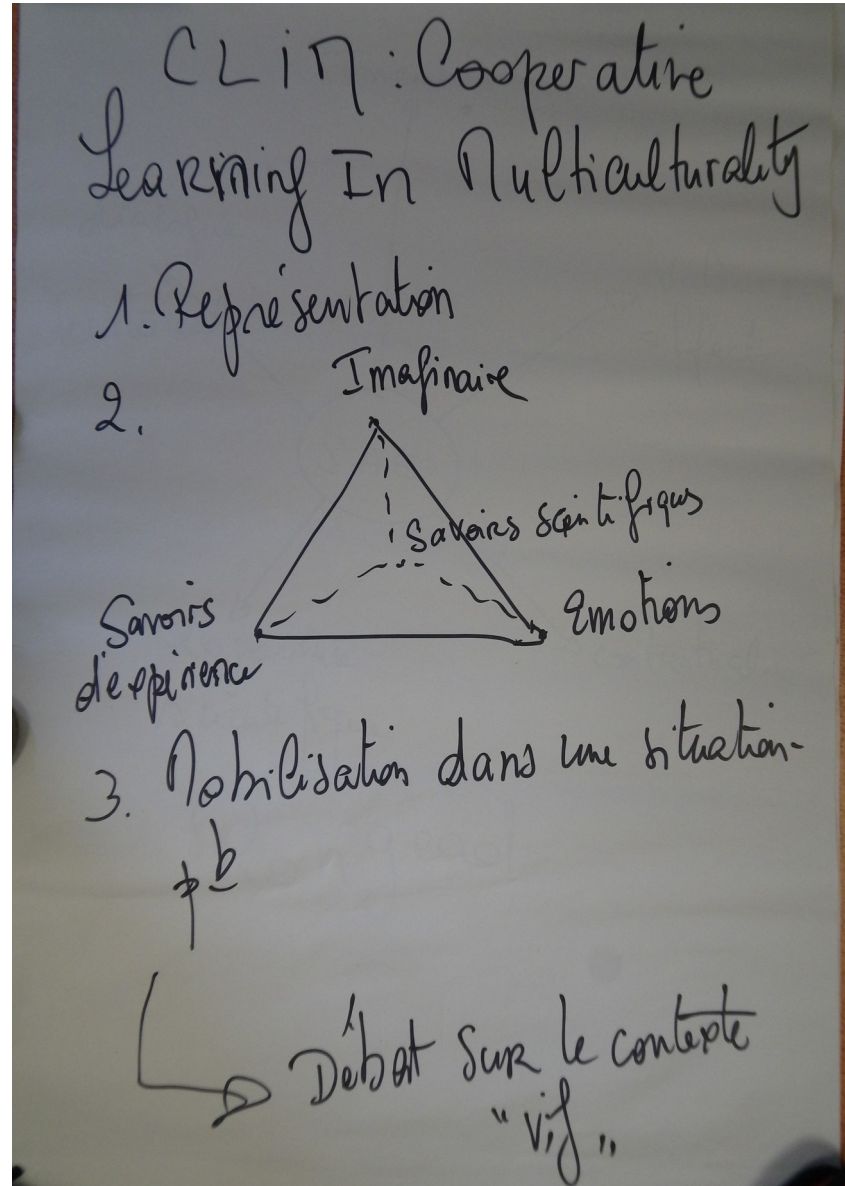 CLIM : Cooperative
Learning In Multiculturality
1. Représentation
2.
Imaginaire
Savoirs scientifiques
Savoirs
d'expérience
Emotions
3. Mobilisation dans une situation-
pb
Débat sur le contexte
"Vif"